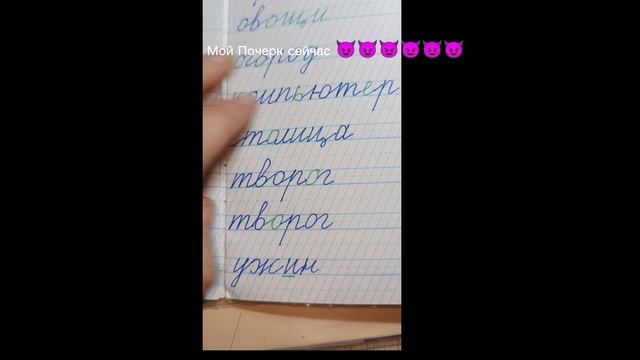 овощи
Мой Почерк сейчас 😈😈😈😈😈😈
огород
компьютер
столица
творог
творог
ужин